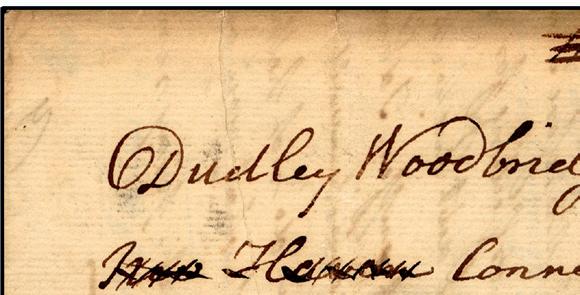 Dudley Woodbridg
New Haven Conne